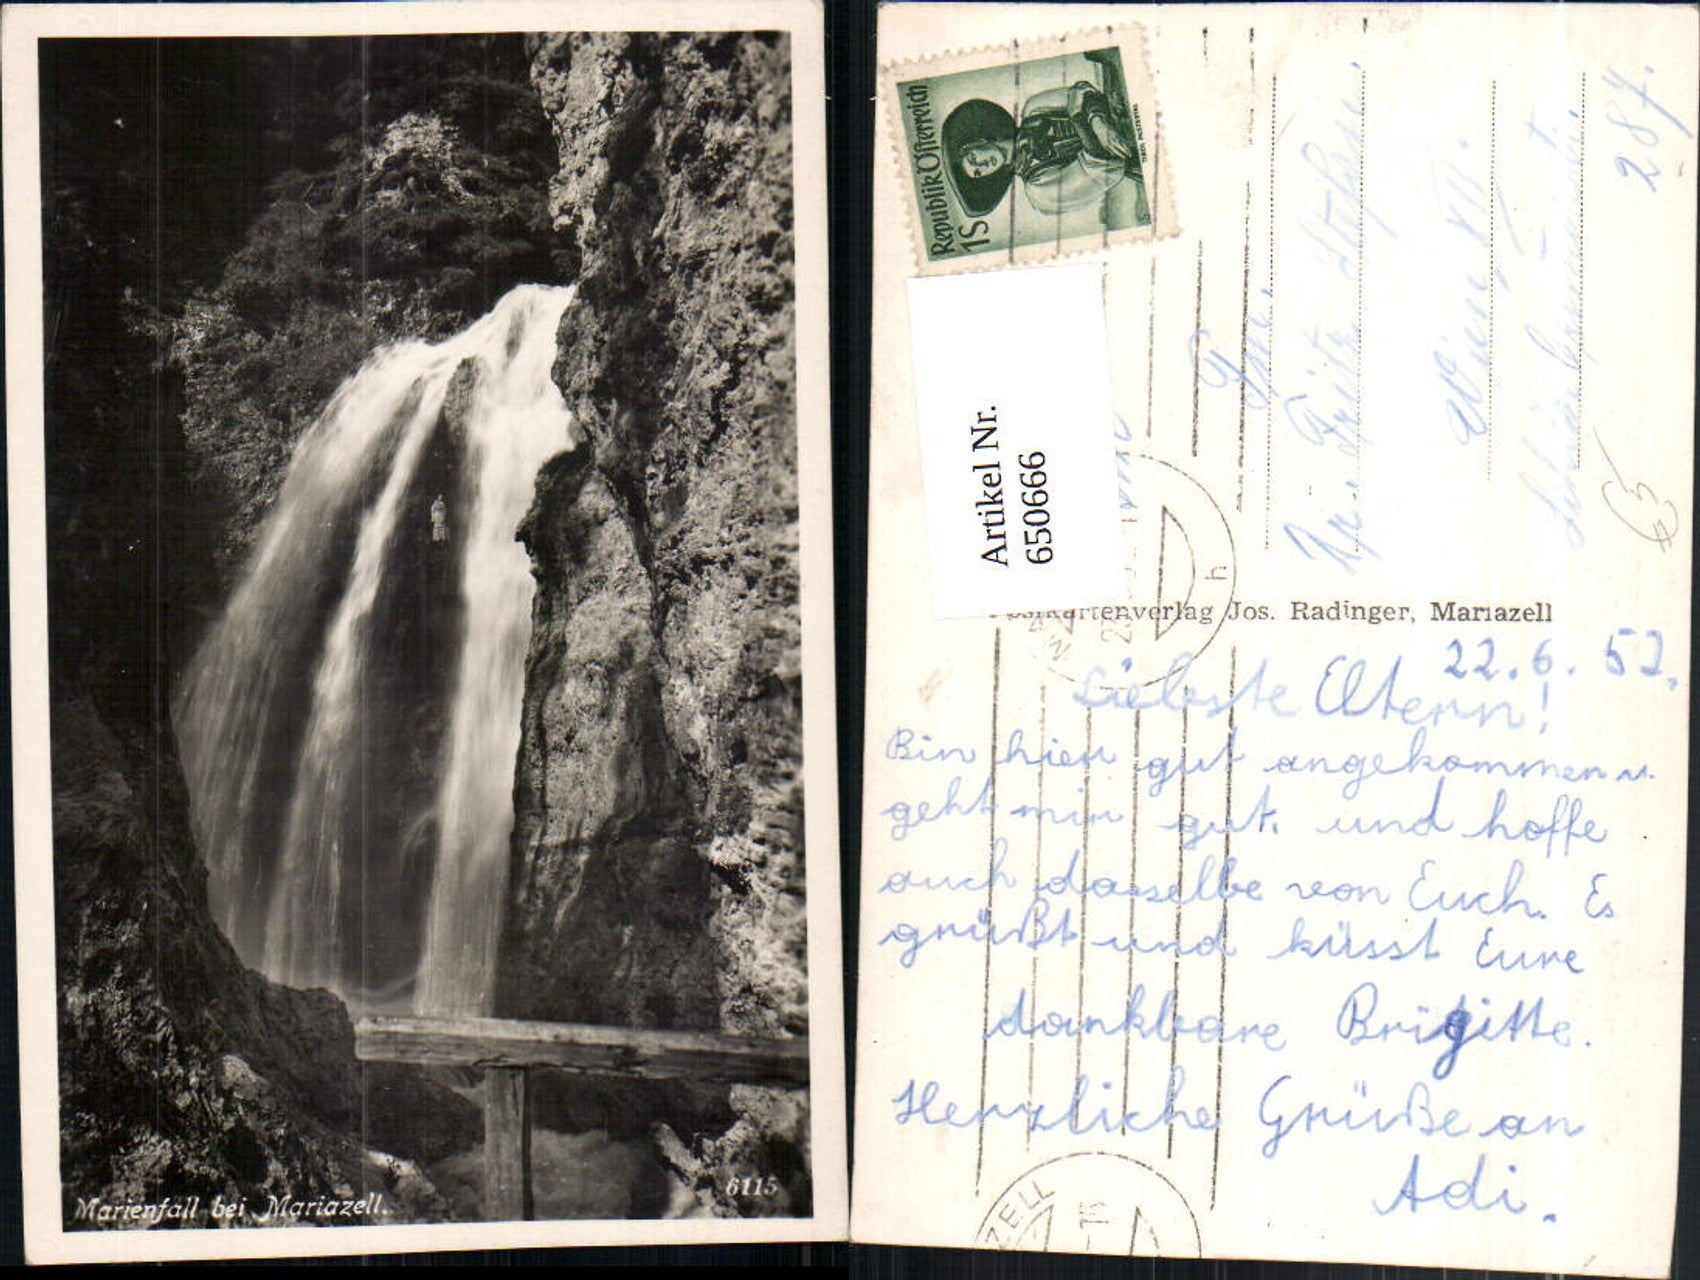 Marienfall bei Mariazell.
6115
Republik Österreich
1S
Artikel Nr.
650666
Postkartenverlag Jos. Radinger, Mariazell
287.
Fam.
Fritz Stefan
Wien, XII.
h
ZELL
22.6.52.
Liebste Eltern!
Bin hier gut angekommen u.
geht mir gut. und hoffe
auch dasselbe von Euch. Es
grüßt und küsst Eure
dankbare Brigitte.
Herzliche Grüße an
Adi.